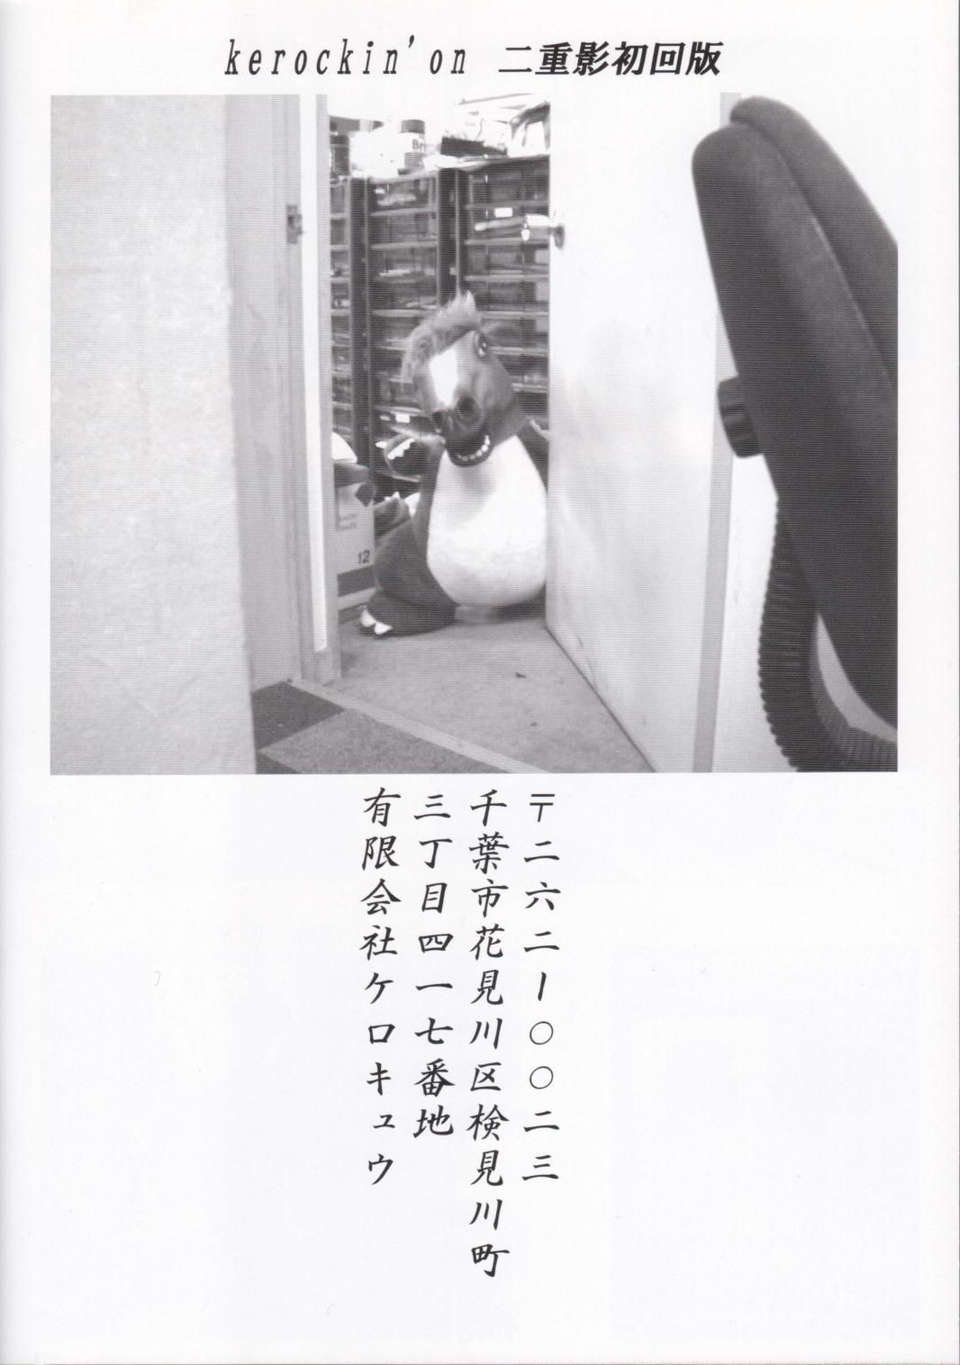 kerockin'on 二重影初回版
Br
12
〒二六二ー〇〇二三
千葉市花見川区検見川町
三丁目四一七番地
有限会社ケロキュウ